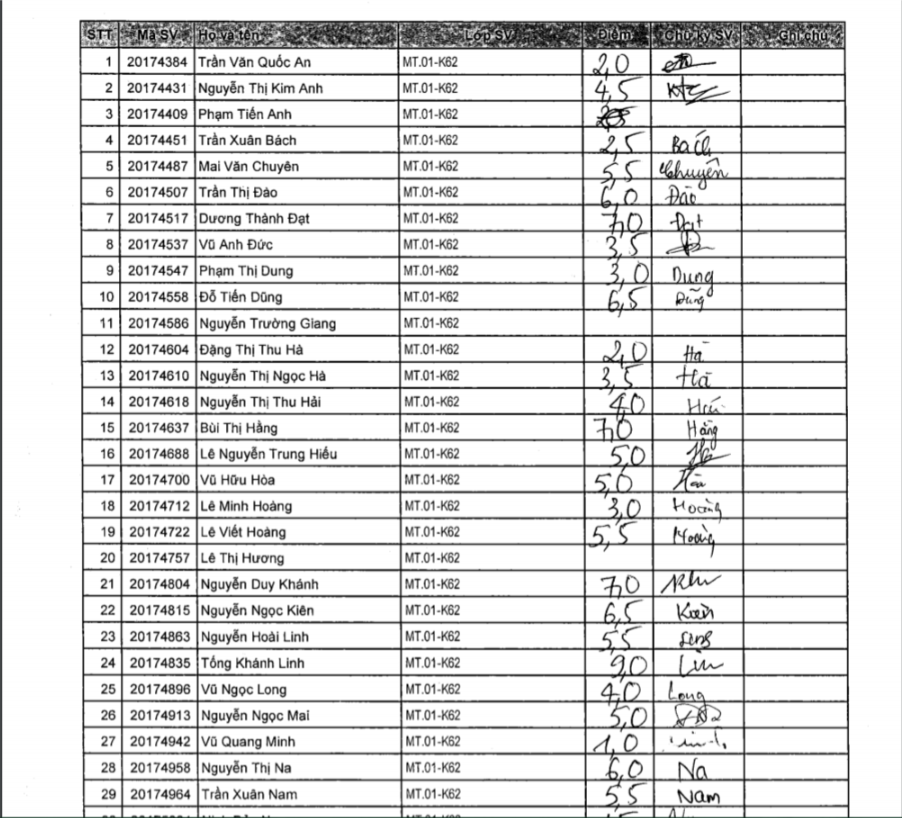 STT Mã SV Họ và tên Lớp SV Điểm Chữ ký SV Ghi chú
1 20174384 Trần Văn Quốc An MT.01-K62 2,0
2 20174431 Nguyễn Thị Kim Anh MT.01-K62 4,5
3 20174409 Phạm Tiến Anh MT.01-K62
4 20174451 Trần Xuân Bách MT.01-K62 2,5 Bách
5 20174487 Mai Văn Chuyên MT.01-K62 5,5 Chuyên
6 20174507 Trần Thị Đào MT.01-K62 6,0 Đào
7 20174517 Dương Thành Đạt MT.01-K62 7,0 Đạt
8 20174537 Vũ Anh Đức MT.01-K62 3,5
9 20174547 Phạm Thị Dung MT.01-K62 3,0 Dung
10 20174558 Đỗ Tiến Dũng MT.01-K62 6,5 Dũng
11 20174586 Nguyễn Trường Giang MT.01-K62
12 20174604 Đặng Thị Thu Hà MT.01-K62 2,0 Hà
13 20174610 Nguyễn Thị Ngọc Hà MT.01-K62 3,5 Hà
14 20174618 Nguyễn Thị Thu Hải MT.01-K62 4,0 Hải
15 20174637 Bùi Thị Hằng MT.01-K62 7,0 Hằng
16 20174688 Lê Nguyễn Trung Hiếu MT.01-K62 5,0
17 20174700 Vũ Hữu Hòa MT.01-K62 5,0 Hòa
18 20174712 Lê Minh Hoàng MT.01-K62 3,0 Hoàng
19 20174722 Lê Viết Hoàng MT.01-K62 5,5 Hoàng
20 20174757 Lê Thị Hương MT.01-K62
21 20174804 Nguyễn Duy Khánh MT.01-K62 7,0
22 20174815 Nguyễn Ngọc Kiên MT.01-K62 6,5 Kiên
23 20174863 Nguyễn Hoài Linh MT.01-K62 5,5
24 20174835 Tống Khánh Linh MT.01-K62 9,0
25 20174896 Vũ Ngọc Long MT.01-K62 4,0 Long
26 20174913 Nguyễn Ngọc Mai MT.01-K62 5,0
27 20174942 Vũ Quang Minh MT.01-K62 1,0
28 20174958 Nguyễn Thị Na MT.01-K62 6,0 Na
29 20174964 Trần Xuân Nam MT.01-K62 5,5 Nam